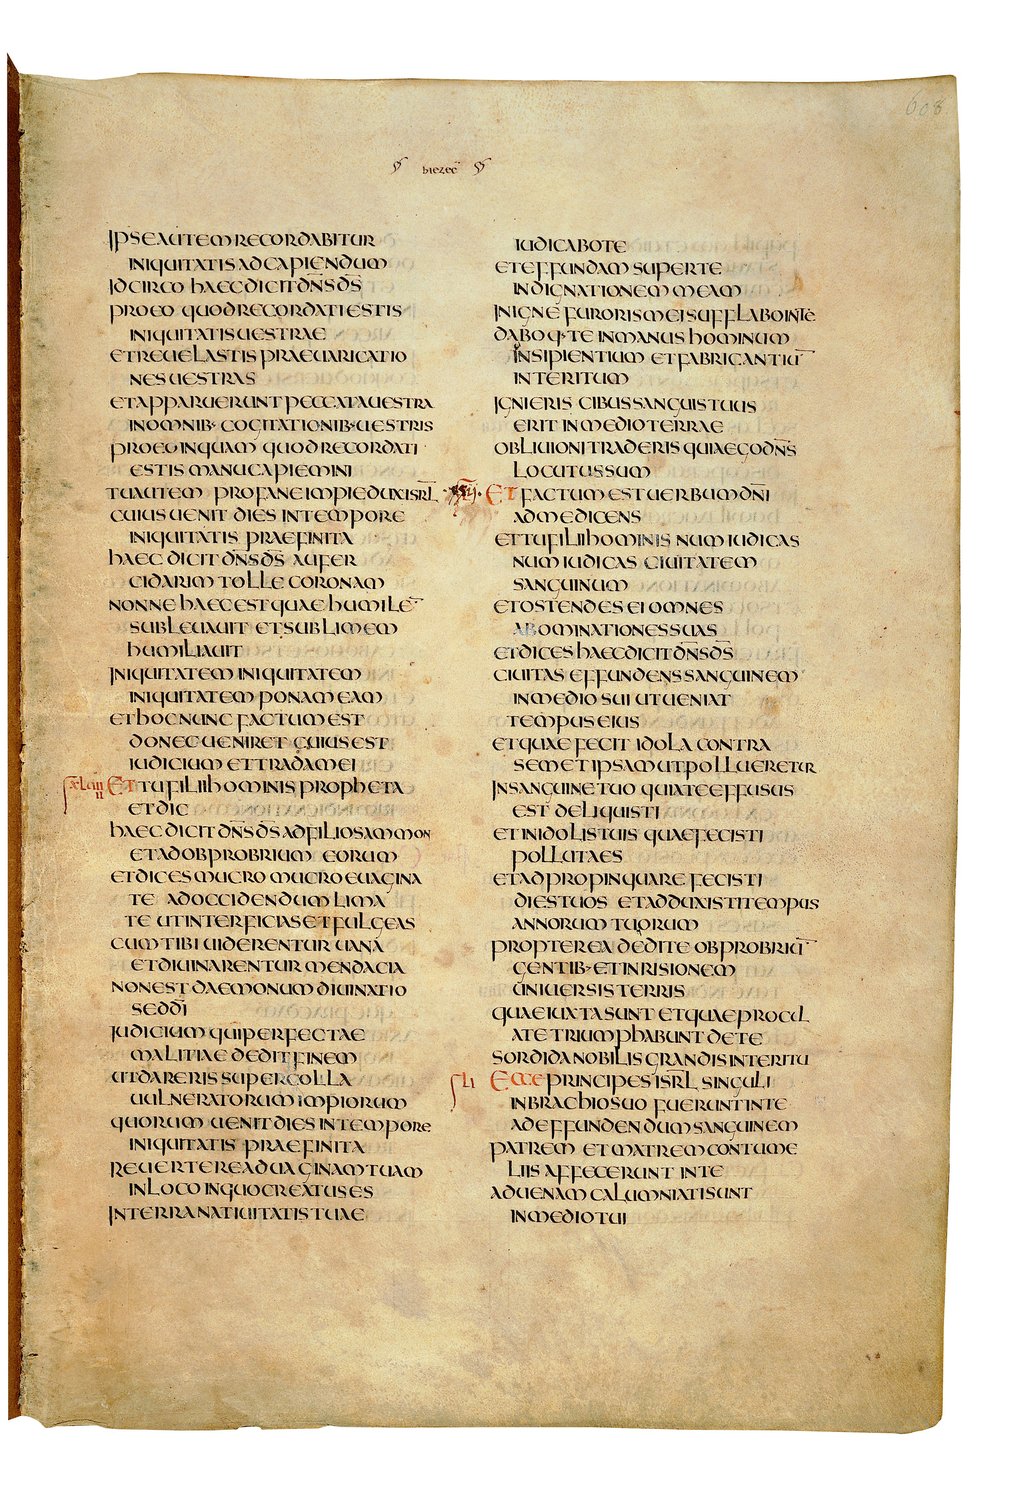 608
hiezec
IPSE AUTEM RECORDABITUR
INIQUITATIS AD CAPIENDUM
IDCIRCO HAEC DICIT DN̄S DS̄
PRO EO QUOD RECORDATI ESTIS
INIQUITATIS UESTRAE
ET REUELASTIS PRAEUARICATIO
NES UESTRAS
ET APPARUERUNT PECCATA UESTRA
IN OMNIB· COGITATIONIB· UESTRIS
PRO EO INQUAM QUOD RECORDATI
ESTIS MANU CAPIEMINI
TU AUTEM PROFANE IMPIE DUX ISRL̄
CUIUS UENIT DIES IN TEMPORE
INIQUITATIS PRAEFINITA
HAEC DICIT DN̄S DS̄ AUFER
CIDARIM TOLLE CORONAM
NONNE HAEC EST QUAE HUMILĒ
SUBLEUAUIT ET SUBLIMEM
HUMILIAUIT
INIQUITATEM INIQUITATEM
INIQUITATEM PONAM EAM
ET HOC NUNC FACTUM EST
DONEC UENIRET CUIUS EST
IUDICIUM ET TRADAM EI
ET TU FILI HOMINIS PROPHETA
ET DIC
HAEC DICIT DN̄S DS̄ AD FILIOS AMMON
ET AD OBPROBRIUM EORUM
ET DICES MUCRO MUCRO EUAGINA
TE AD OCCIDENDUM LIMA
TE UT INTERFICIAS ET FULGEAS
CUM TIBI UIDERENTUR UANA
ET DIUINARENTUR MENDACIA
NON EST DAEMONUM DIUINATIO
SED DĪ
IUDICIUM QUI PERFECTAE
MALITIAE DEDIT FINEM
UT DARERIS SUPER COLLA
UULNERATORUM IMPIORUM
QUORUM UENIT DIES IN TEMPORE
INIQUITATIS PRAEFINITA
REUERTERE AD UAGINAM TUAM
IN LOCO IN QUO CREATUS ES
IN TERRA NATIUITATIS TUAE
IUDICABO TE
ET EFFUNDAM SUPER TE
INDIGNATIONEM MEAM
IN IGNE FURORIS MEI SUFFLABO IN TE
DABOQ· TE IN MANUS HOMINUM
INSIPIENTIUM ET FABRICANTIŪ
INTERITUM
IGNI ERIS CIBUS SANGUIS TUUS
ERIT IN MEDIO TERRAE
OBLIUIONI TRADERIS QUIA EGO DN̄S
LOCUTUS SUM
ET FACTUM EST UERBUM DN̄I
AD ME DICENS
ET TU FILI HOMINIS NUM IUDICAS
NUM IUDICAS CIUITATEM
SANGUINUM
ET OSTENDES EI OMNES
ABOMINATIONES SUAS
ET DICES HAEC DICIT DN̄S DS̄
CIUITAS EFFUNDENS SANGUINEM
IN MEDIO SUI UT UENIAT
TEMPUS EIUS
ET QUAE FECIT IDOLA CONTRA
SEMET IPSAM UT POLLUERETUR
IN SANGUINE TUO QUI A TE EFFUSUS
EST DELIQUISTI
ET IN IDOLIS TUIS QUAE FECISTI
POLLUTA ES
ET ADPROPINQUARE FECISTI
DIES TUOS ET ADDUXISTI TEMPUS
ANNORUM TUORUM
PROPTEREA DEDI TE OBPROBRIŪ
GENTIB· ET INRISIONEM
UNIUERSIS TERRIS
QUAE IUXTA SUNT ET QUAE PROCUL
A TE TRIUMPHABUNT DE TE
SORDIDA NOBILIS GRANDIS INTERITU
SLI ECCE PRINCIPES ISRL̄ SINGULI
IN BRACHIO SUO FUERUNT IN TE
AD EFFUNDENDUM SANGUINEM
PATREM ET MATREM CONTUME
LIIS AFFECERUNT IN TE
ADUENAM CALUMNIATI SUNT
IN MEDIO TUI